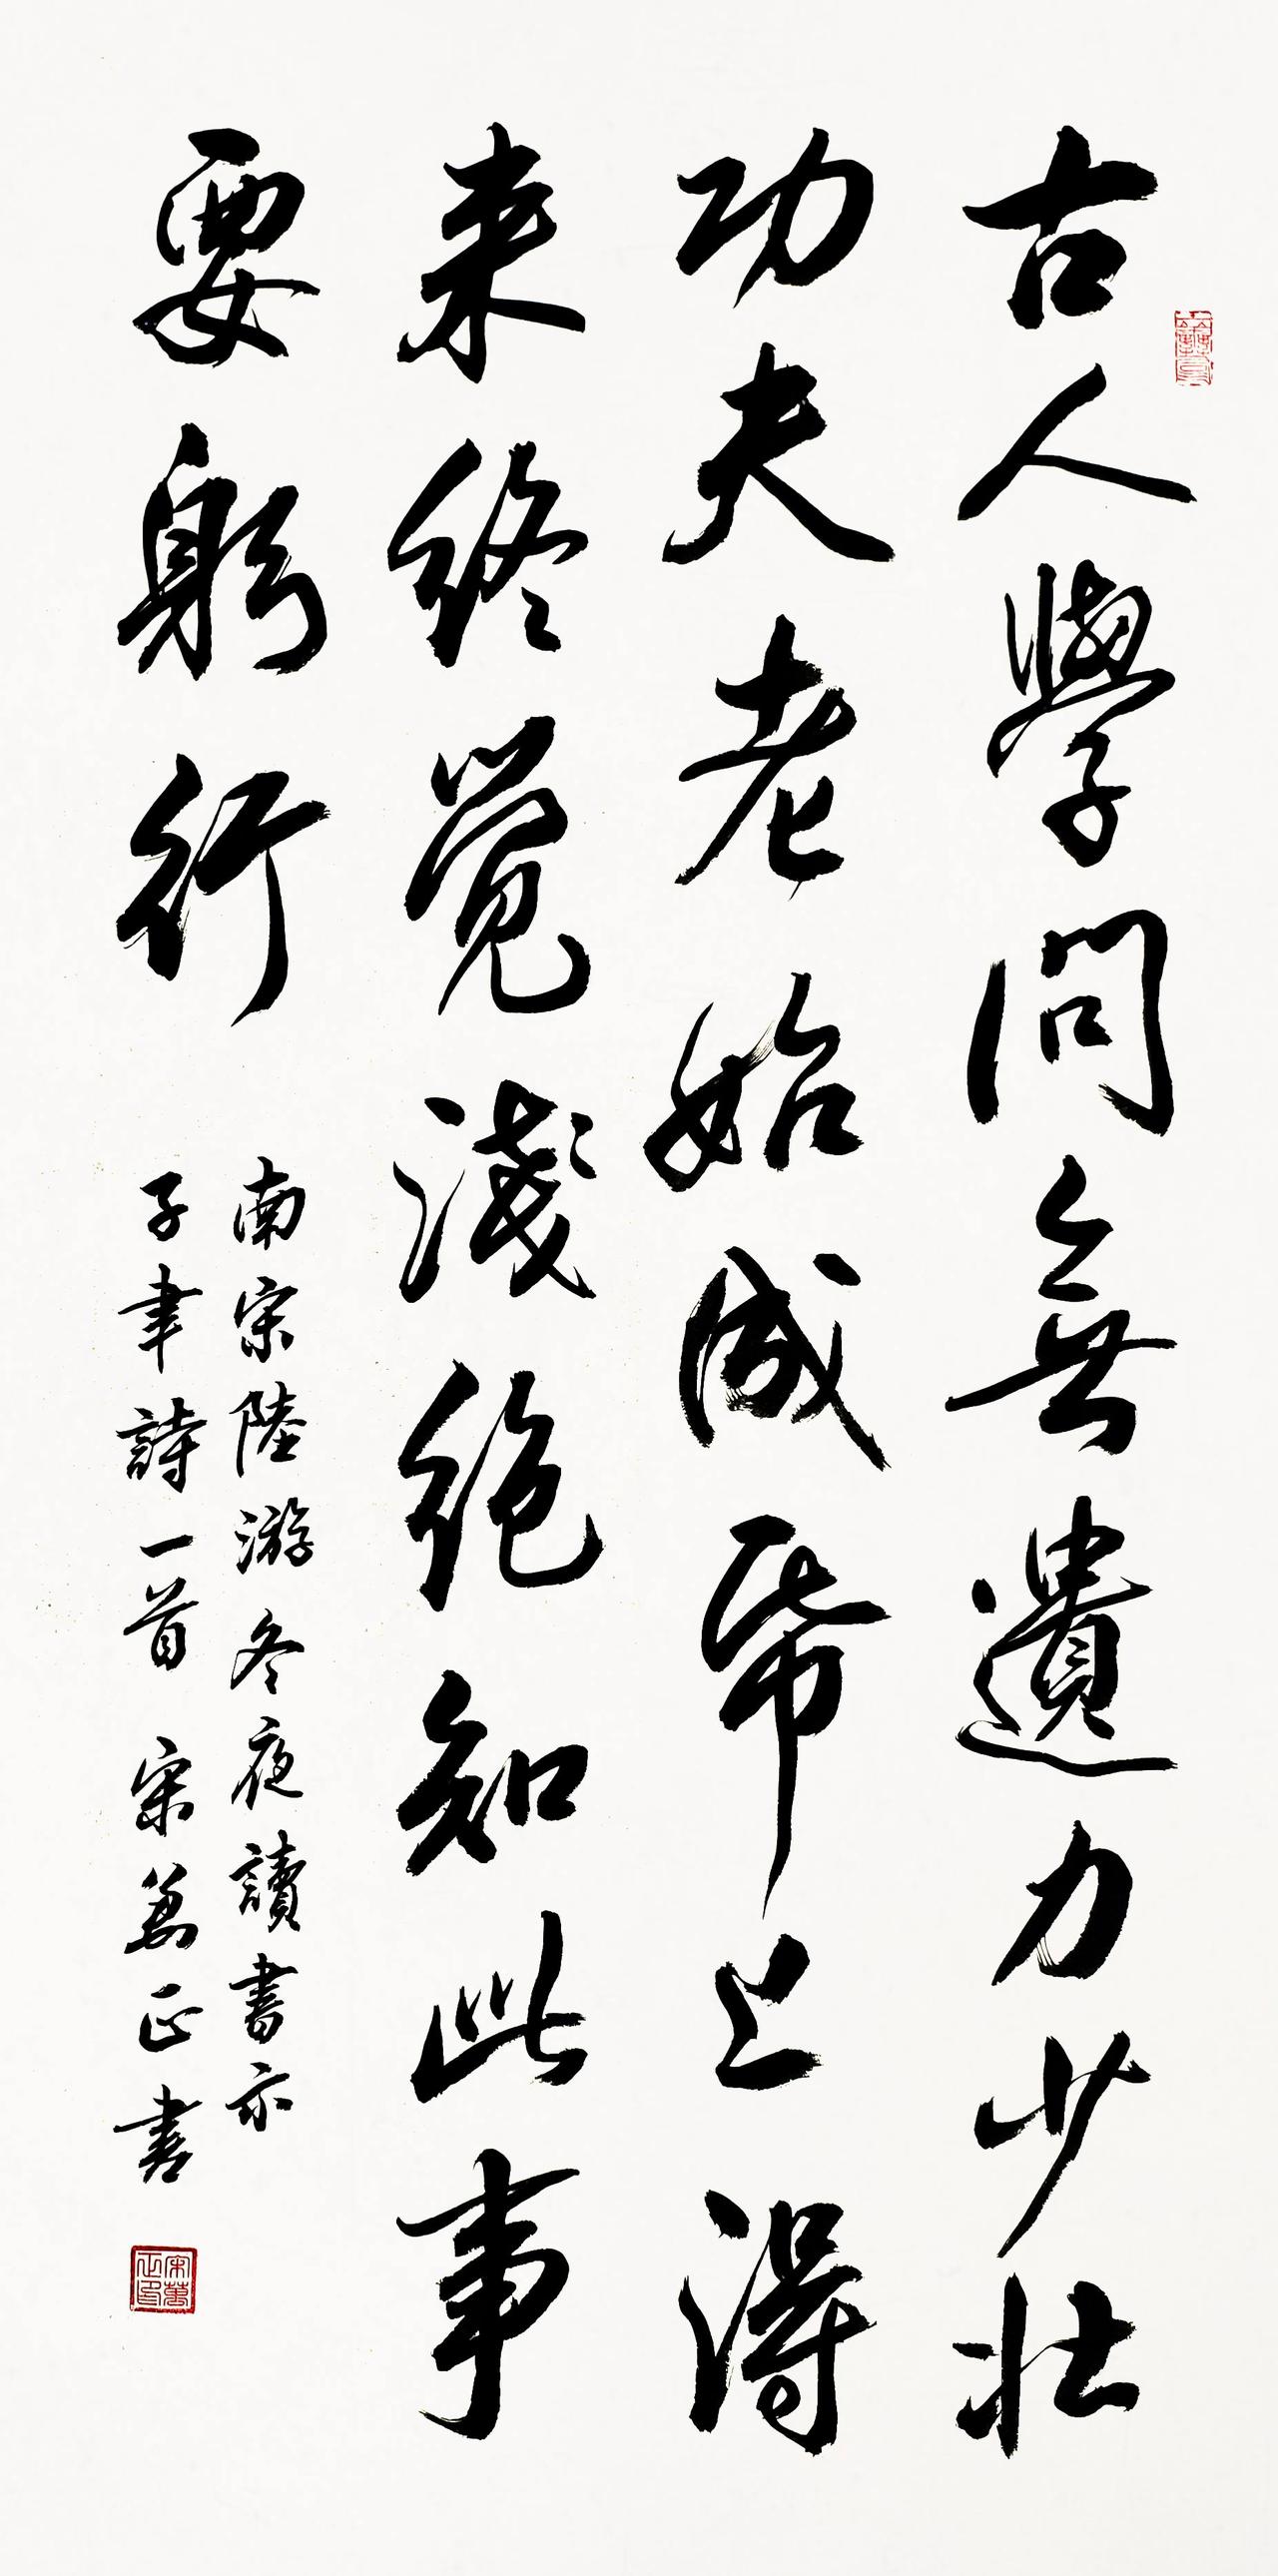 古人學問無遺力少壯
功夫老始成帋上得
来終覺淺絶知此事
要躬行
南宋陸游冬夜讀書示
子聿詩一首 宋萬正書
宋萬正印